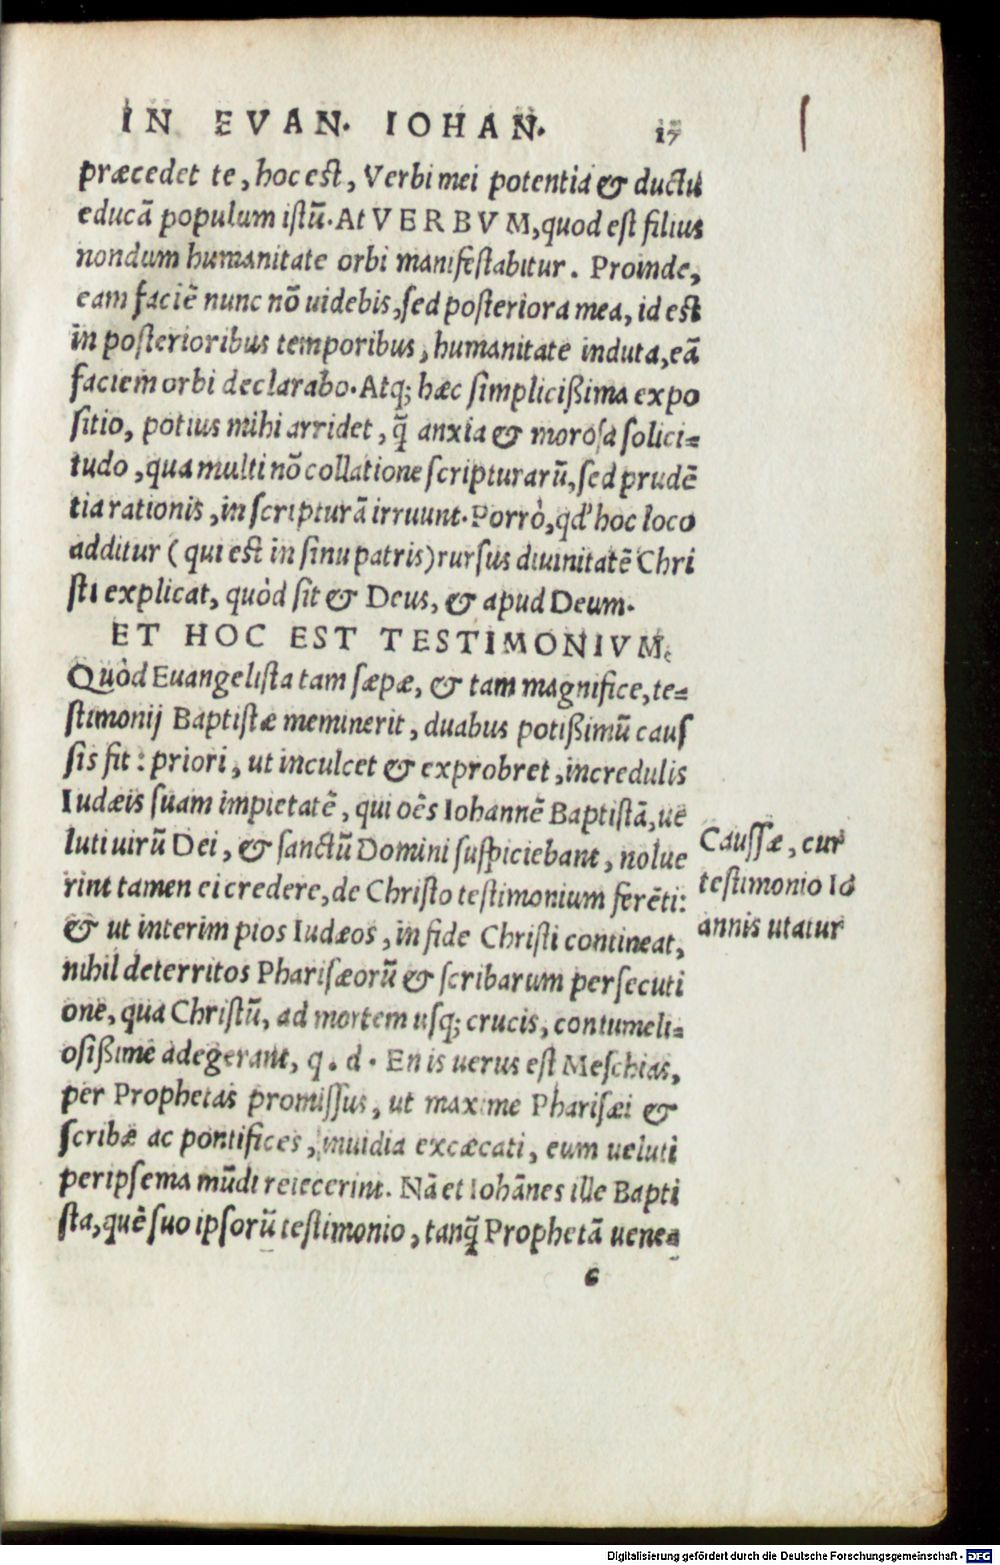 IN EVAN. IOHAN. 17
præcedet te, hoc est, Verbi mei potentia & ductu
educā populum istū. At VERBVM, quod est filius
nondum humanitate orbi manifestabitur. Proinde,
eam faciē nunc nō uidebis, sed posteriora mea, id est
in posterioribus temporibus, humanitate induta, eā
faciem orbi declarabo. Atq; hæc simplicißima expo
sitio, potius mihi arridet, q̃ anxia & morosa solici-
tudo, qua multi nō collatione scripturarū, sed prudē
tia rationis, in scripturā irruunt. Porrò, qd' hoc loco
additur (qui est in sinu patris) rursus diuinitatē Chri
sti explicat, quòd sit & Deus, & apud Deum.
ET HOC EST TESTIMONIVM.
Quòd Euangelista tam sæpæ, & tam magnifice, te-
stimonij Baptistæ meminerit, duabus potißimū caus
sis fit: priori, ut inculcet & exprobret, incredulis
Iudæis suam impietatē, qui oēs Iohannē Baptistā, ue
luti uirū Dei, & sanctū Domini suspiciebant, nolue
rint tamen ei credere, de Christo testimonium ferēti:
& ut interim pios Iudæos, in fide Christi contineat,
nihil deterritos Pharisæorū & scribarum persecuti
one, qua Christū, ad mortem usq; crucis, contumeli-
osißime adegerant, q. d. En is uerus est Meschias,
per Prophetas promissus, ut maxime Pharisæi &
scribæ ac pontifices, inuidia excæcati, eum ueluti
peripsema mūdi reiecerint. Nā et Iohānes ille Bapti
sta, quē suo ipsorū testimonio, tanq̃ Prophetā uene-
Caussæ, cur
testimonio Io
annis utatur
c
Digitalisierung gefördert durch die Deutsche Forschungsgemeinschaft - DFG